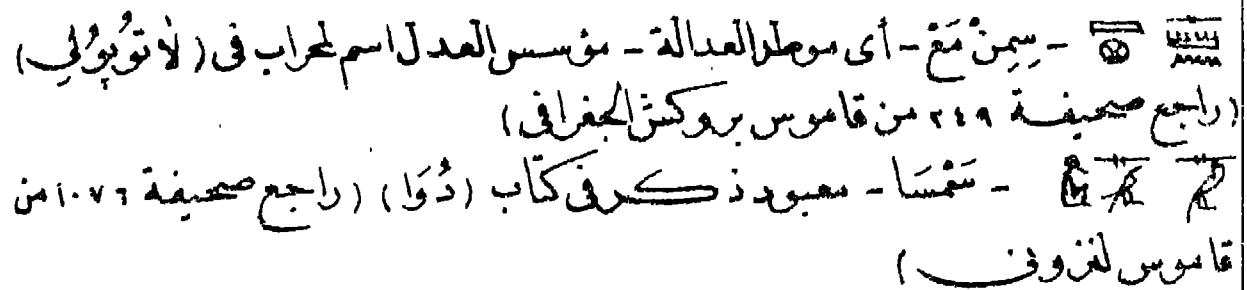 - سِمِنْ مَعْ - أى موطد العدالة - مؤسس العدل اسم لمحراب فى ( لاتوُبوُلي )
( راجع صحيفة ٢٤٩ من قاموس بروكش الجغرافى )
- سَمْسَا - معبود ذكر فى كتاب ( دُوَا ) ( راجع صحيفة ١٠٧٦ من
قاموس لنزونى )